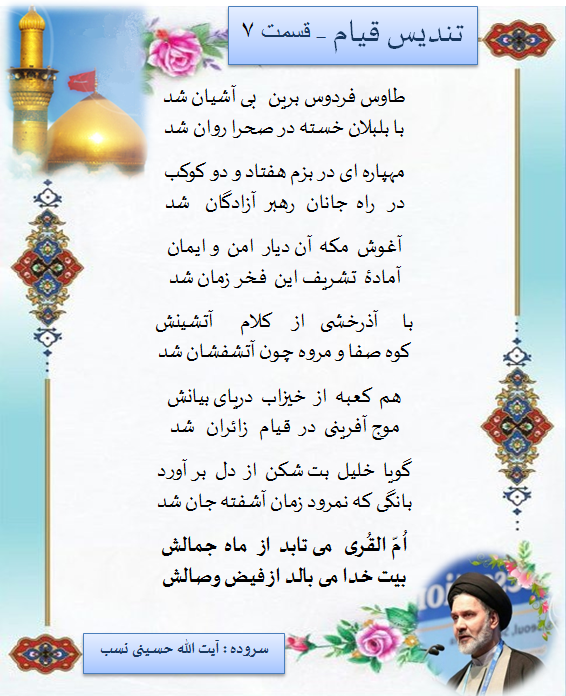 تندیس قیام - قسمت ۷
طاوس فردوس برین بی آشیان شد
با بلبلان خسته در صحرا روان شد
مهپاره ای در بزم هفتاد و دو کوکب
در راه جانان رهبر آزادگان شد
آغوش مکه آن دیار امن و ایمان
آمادهٔ تشریف این فخر زمان شد
با آذرخشی از کلام آتشینش
کوه صفا و مروه چون آتشفشان شد
هم کعبه از خیزاب دریای بیانش
موج آفرینی در قیام زائران شد
گویا خلیل بت شکن از دل بر آورد
بانگی که نمرود زمان آشفته جان شد
اُمّ القُری می تابد از ماه جمالش
بیت خدا می بالد از فیض وصالش
سروده : آیت الله حسینی نسب